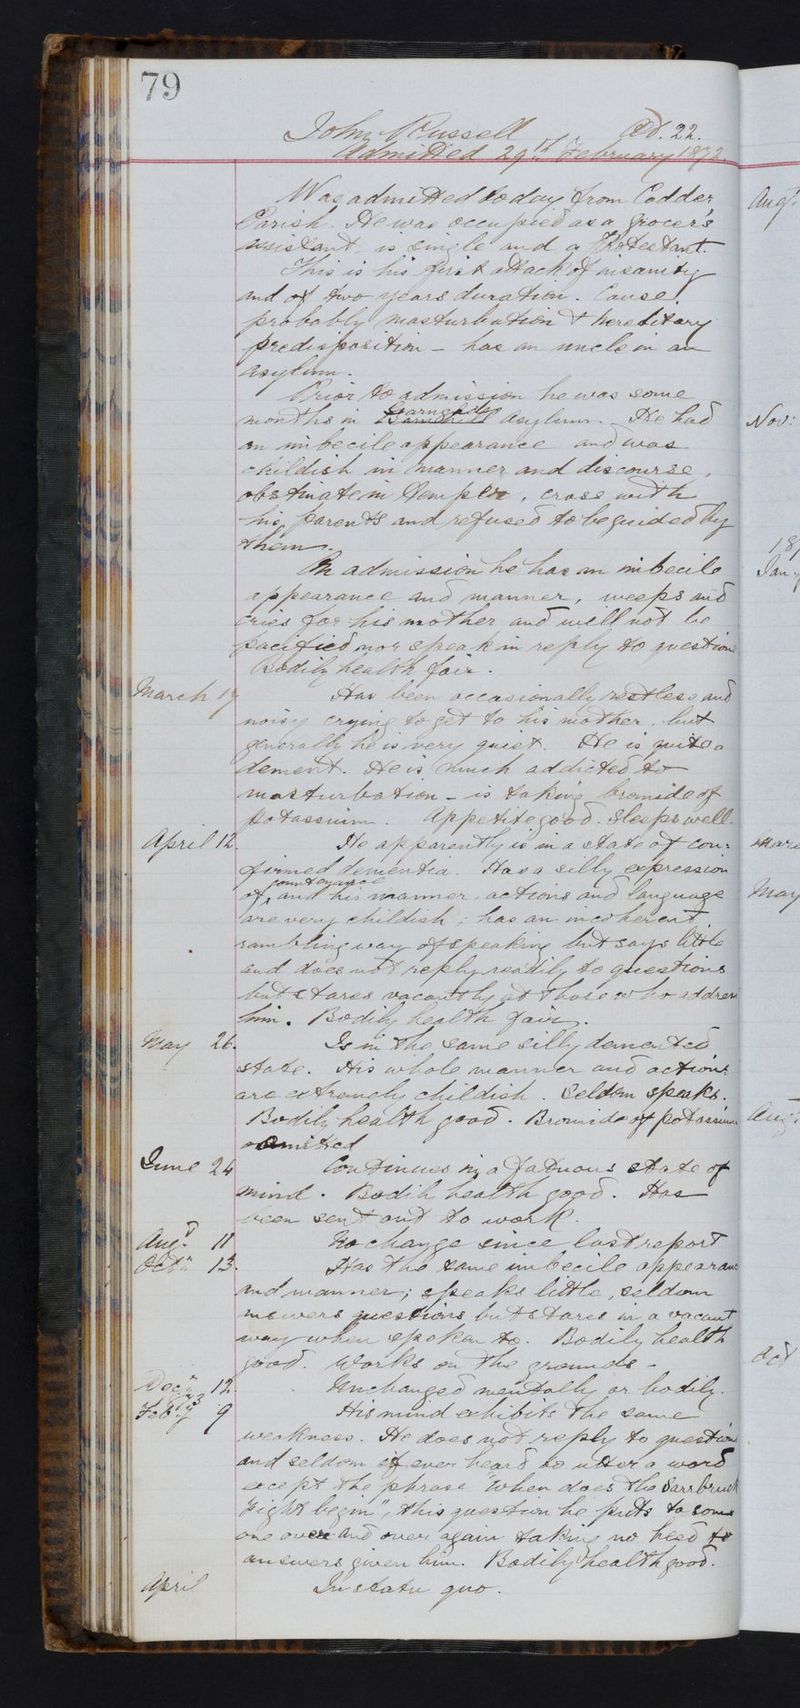 79
John Russell Æd. 22.
Admitted 29th February 1872
Was admitted today from Cadder
Parish. He was occupied as a grocer's
assistant is single and a Protestant.
This is his first attack of insanity
and of two years duration. Cause,
probably masturbation & hereditary
predisposition - has an uncle in an
asylum.
Prior to admission he was some
months in Barnhill Garngad Asylum. He had
an imbecile appearance and was
childish in manner and discourse,
obstinate in temper, cross with
his parents and refused to be guided by
them.
On admission he has an imbecile
appearance and manner, weeps and
cries for his mother and will not be
pacified nor speak in reply to question
Bodily health fair.
March 17 Has been occasionally restless and
noisy crying to get to his mother, but
generally he is very quiet. He is quite a
dement. He is much addicted to
masturbation - is taking bromide of
potassium. Appetite good. Sleeps well.
April 12. He apparently is in a state of con:
firmed dementia. Has a silly expression
of countenance and his manner, actions and language
are very childish; has an incoherent
rambling way of speaking but says little
and does not reply readily to questions
but stares vacantly at those who address
him. Bodily health fair.
May 26. Is in the same silly demented
state. His whole manner and actions
are extremely childish. Seldom speaks.
Bodily health good. Bromide of potassium
omitted
June 24 Continues in a fatuous state of
mind. Bodily health good. Has
been sent out to work.
Augt 11 No change since last report
Octr 13. Has the same imbecile appearance
and manner; speaks little, seldom
answers questions but stares in a vacant
way when spoken to. Bodily health
good. Works on the grounds -
Decr 12. Unchanged mentally or bodily.
1873
Feby 9 His mind exhibits the same
weakness. He does not reply to question
and seldom if ever heard to utter a word
except the phrase "When does the Sarrbruck
fight begin", this question he puts to some
one over and over again taking no heed to
answers given him. Bodily health good.
April In statu quo.
Augt
Nov:
187
Jan.y
May
Oct